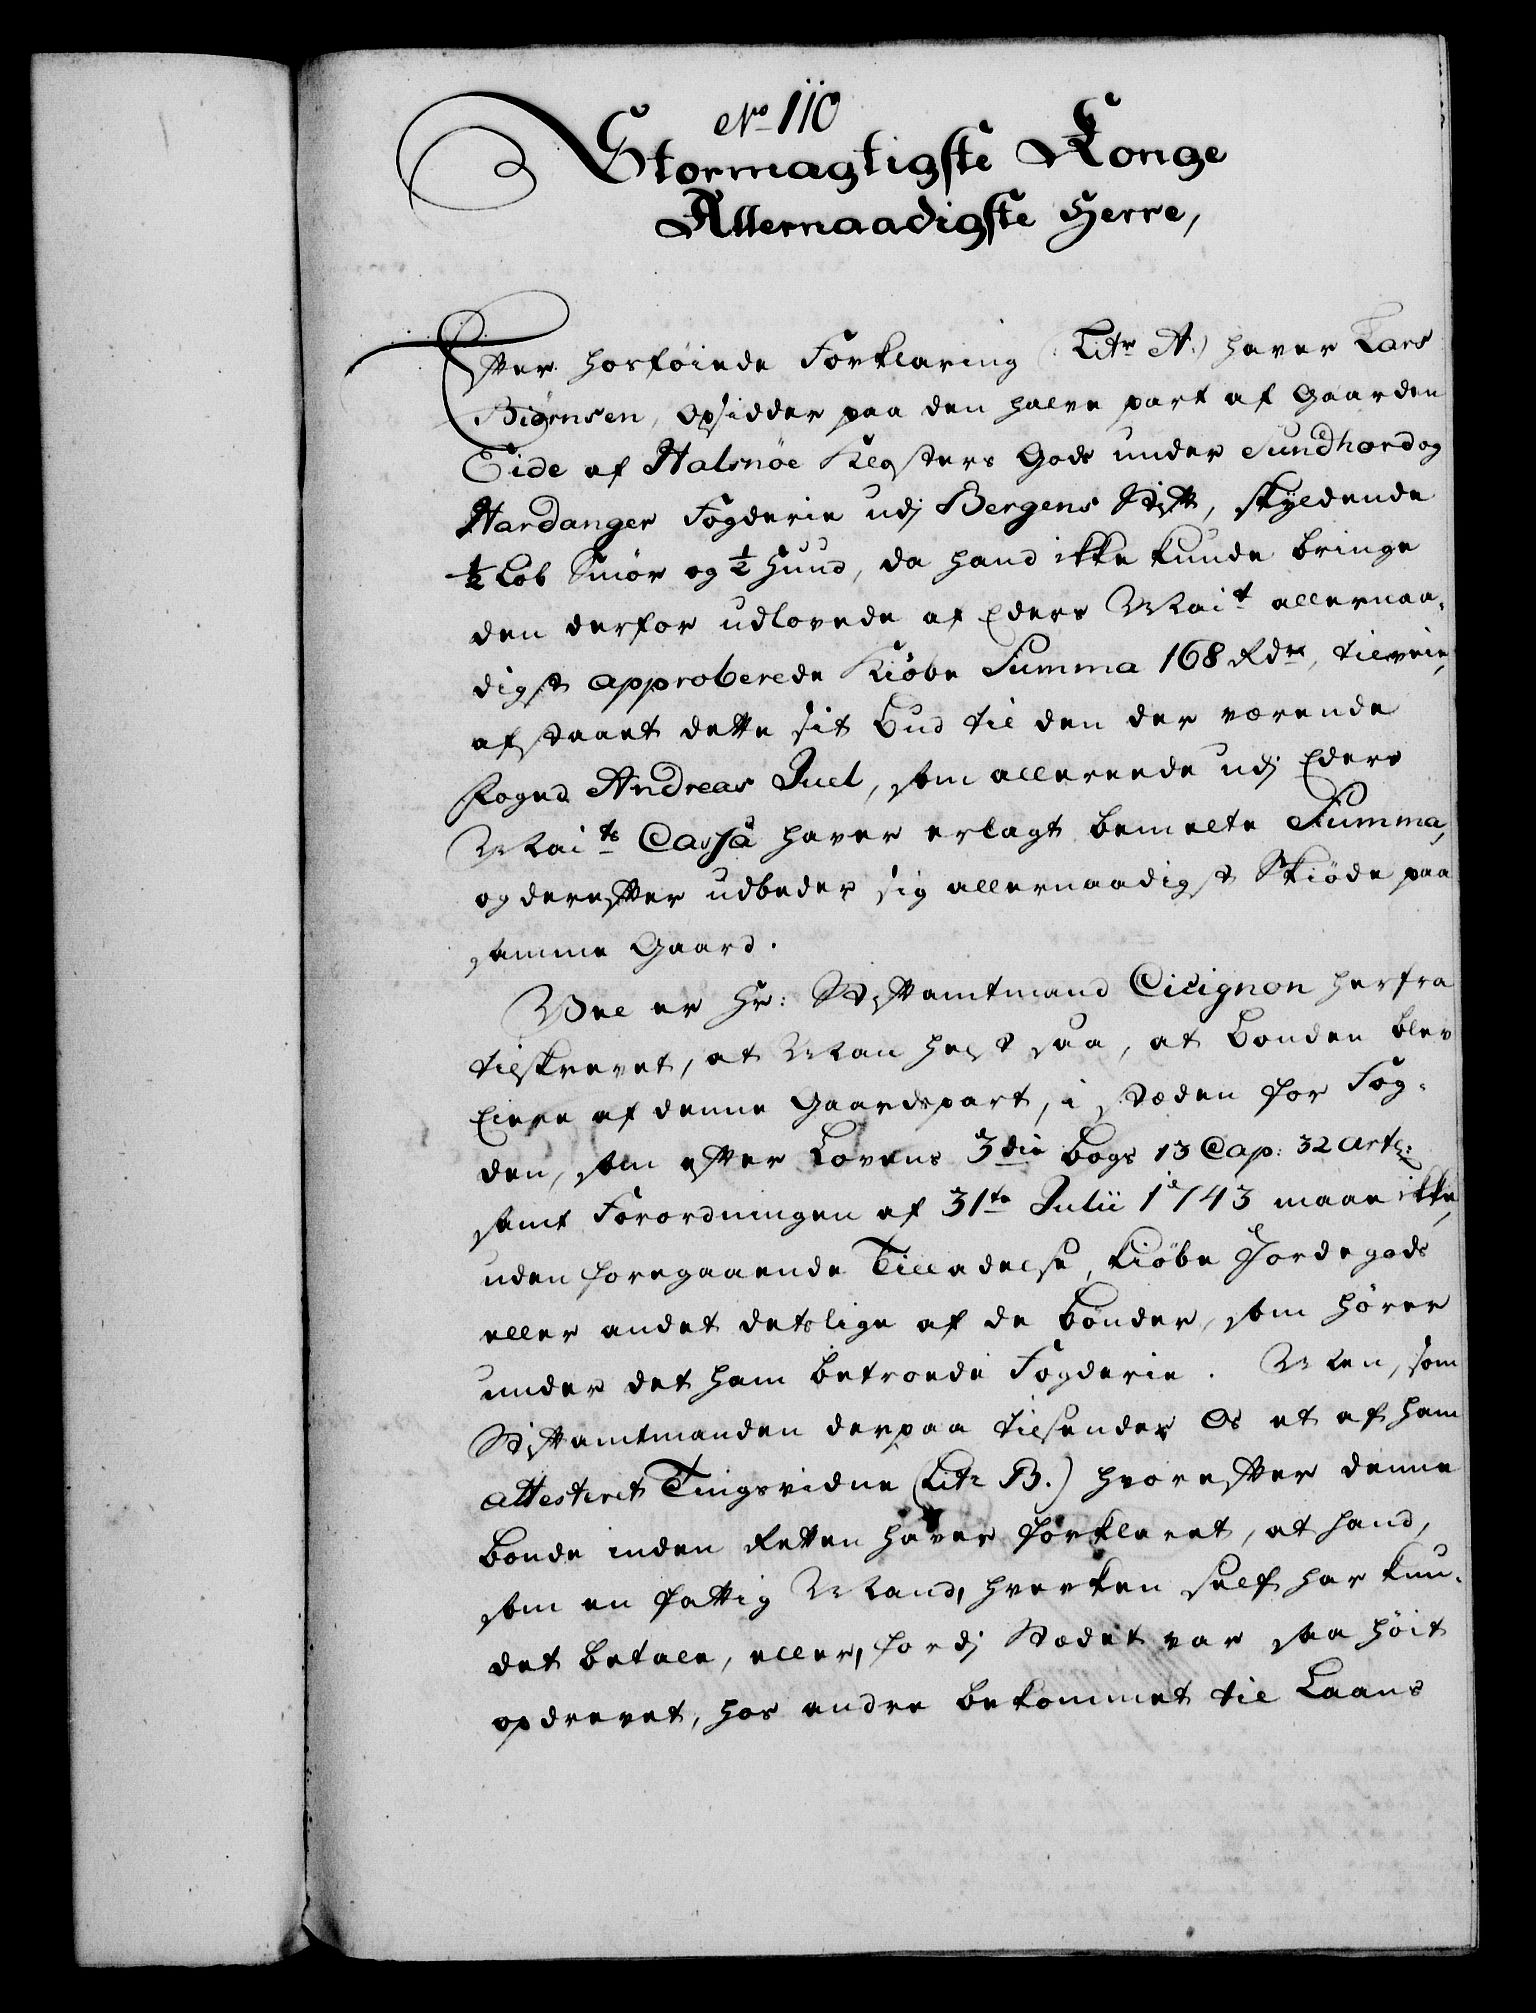 No 110
Stormagtigste Konge
Allernaadigste Herre,
Efter hosføiede Forklaring (Litr A.) haver Lars
Biørnsen, Opsidder paa den halve part af Gaarden
Eide af Halsnöe Klosters Gods under Sundhord og
Hardanger Fogderie udj Bergens Stift, skyldende
½ Løb Smør og ½ Huud, da hand ikke kunde bringe
den derfor udlovede af Eders Mait allernaa-
digst approberede Kiøbe Summa 168 Rdr, tilveie,
afstaaet dette sit Bud til den der værende
Foged Andreas Juel, som allerede udj Eders
Maits Cassa haver erlagt bemelte Summa,
og derefter udbeder sig allernaadigst Skiøde paa
samme Gaard.
Vel er Hr: Stiftamtmand Cicignon herfra
tilskrevet, at Man helst saa, at Bonden blev
Eiere af denne Gaardepart, i stæden for Fog-
den, som efter Lovens 3die Bogs 13 Cap: 32 Artl:
samt Forordningen af 31te Julii 1743 maae ikke,
uden foregaaende Tilladelse, kiøbe Jordegods
eller andet detslige af de Bønder, som hører
under det ham betroede Fogderie. Men, som
Stiftamtmanden derpaa tilsender Os et af ham
attesterit Tingsvidne (Litr B.) hvorefter denne
Bonde inden Retten haver forklaret, at hand,
som en fattig Mand, hverken self har kun-
det betale, eller, fordj Stædet var saa høit
opdrevet, hos andre bekommet til Laans